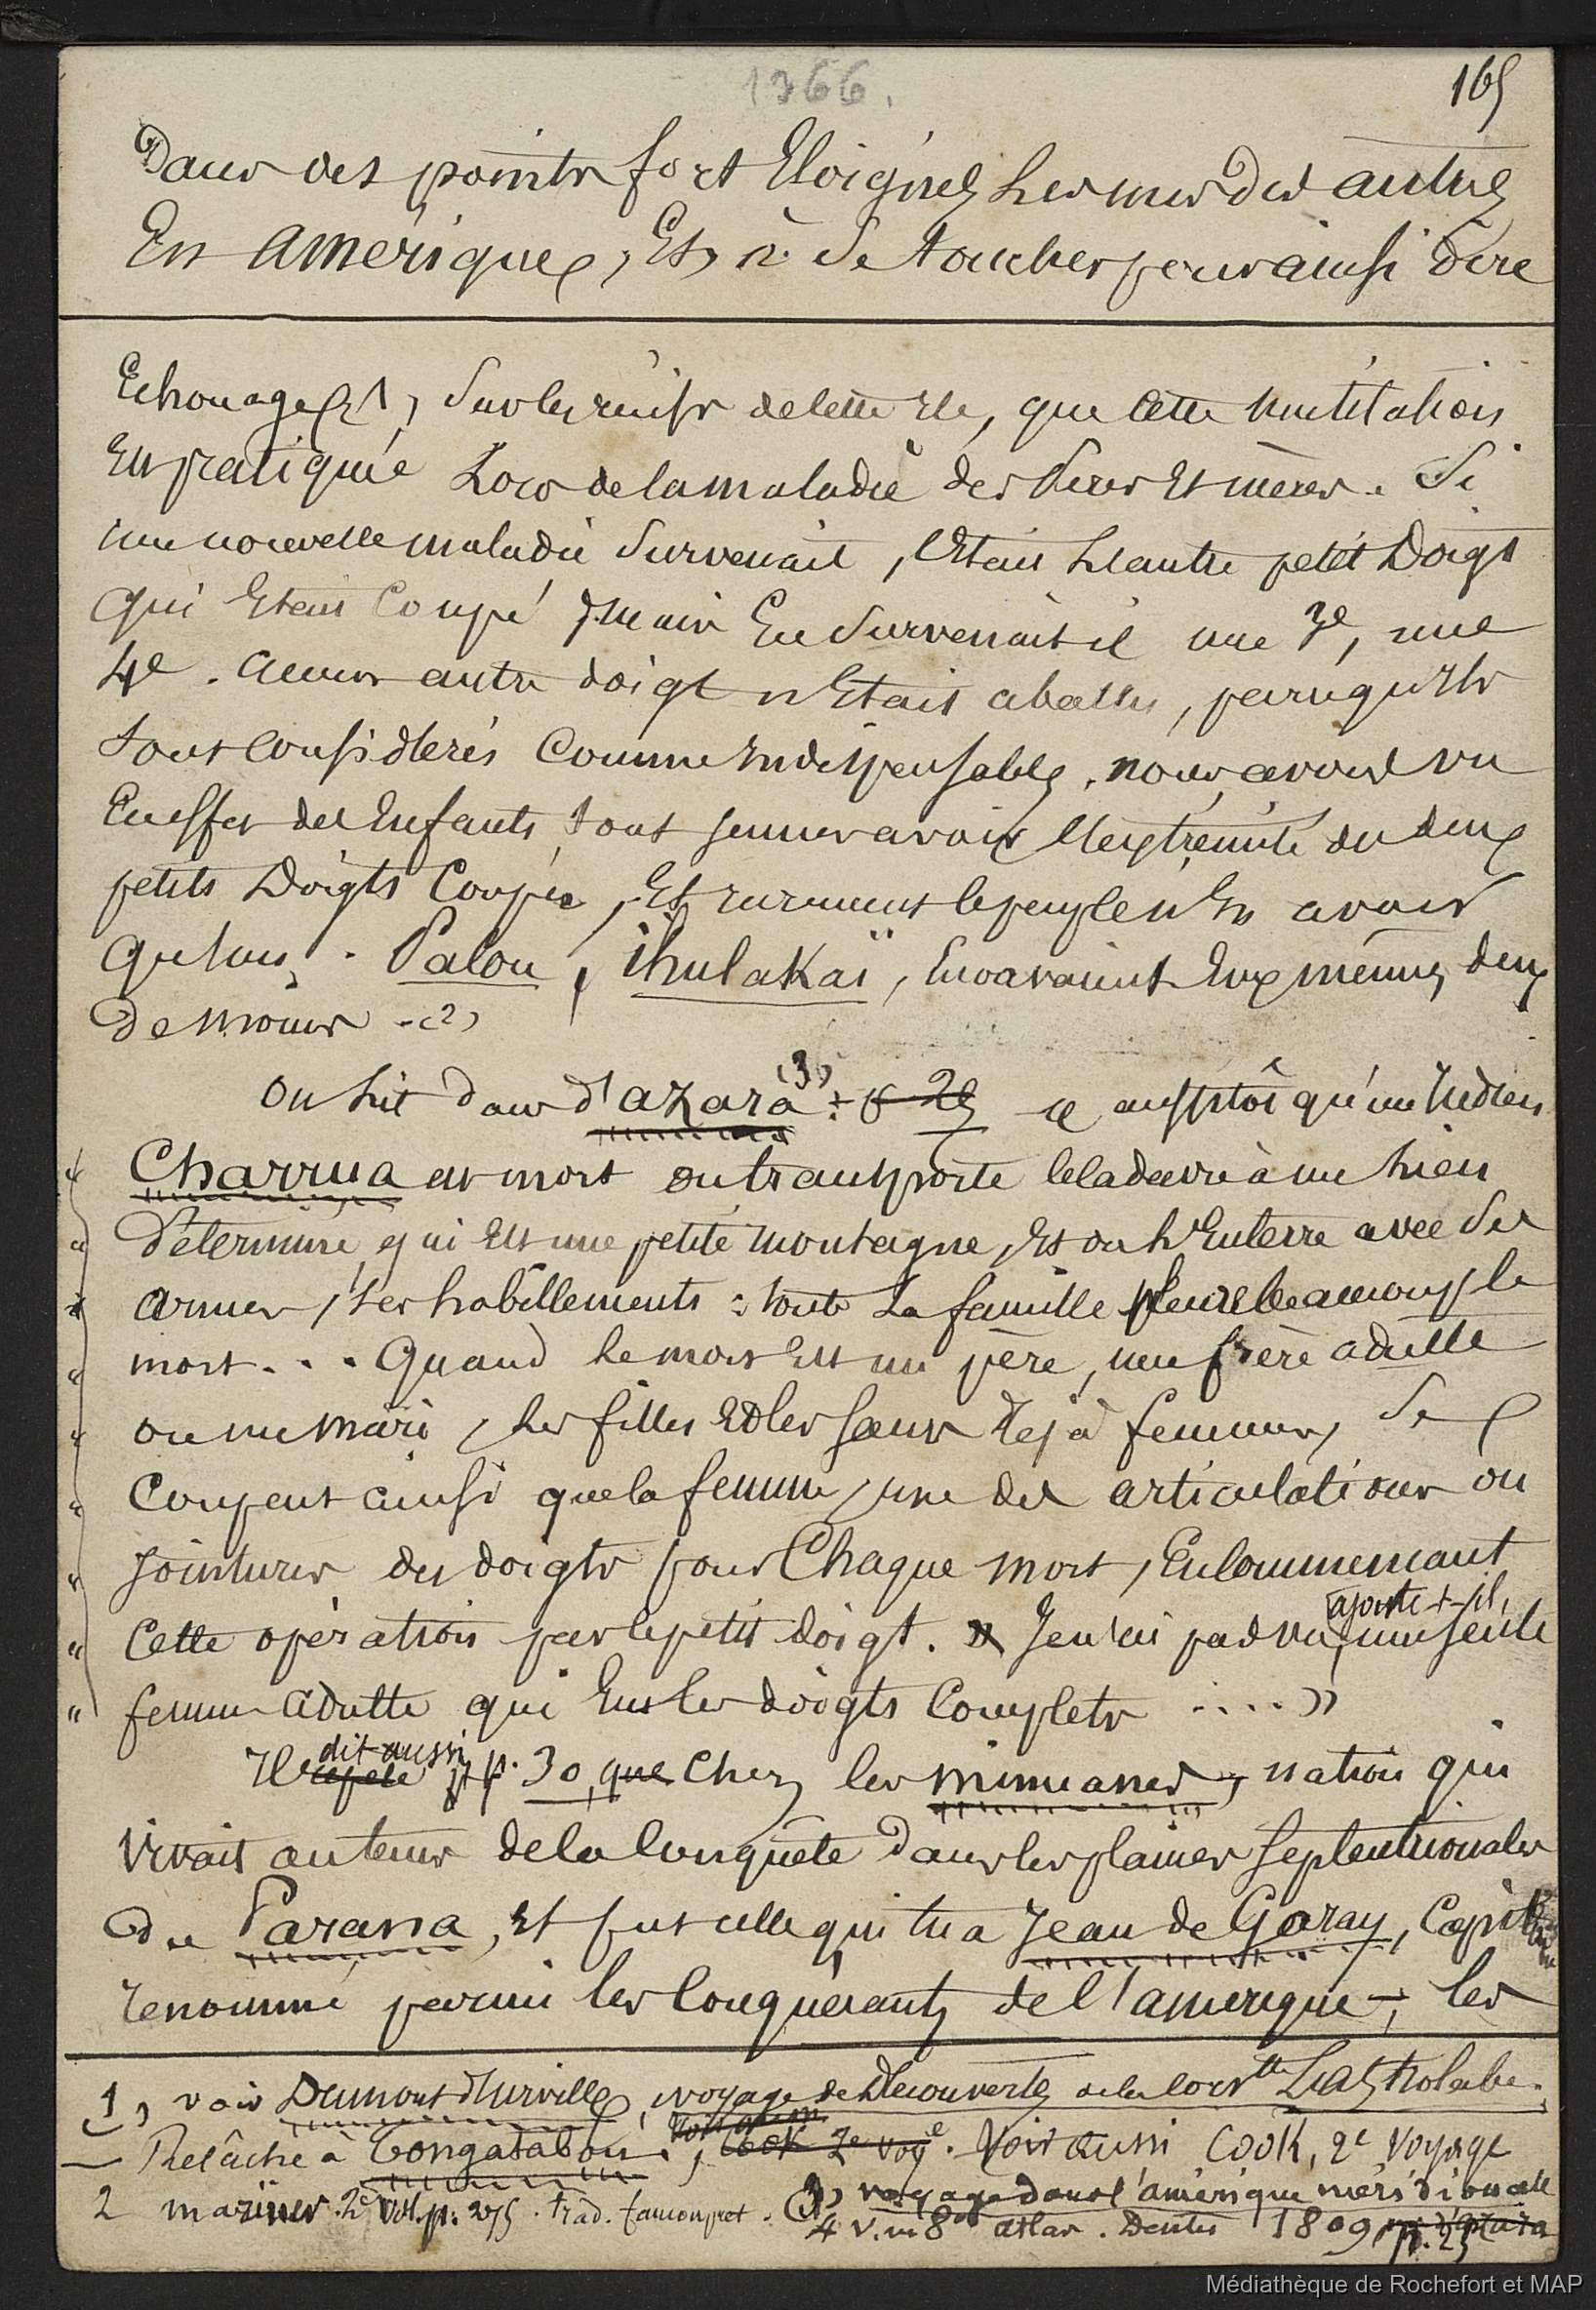 1366.
165
Dans des points fort Eloignés les uns des autres
En amérique, Et, à se toucher pour ainsi dire
Echouage (1) sur les récifs de cette Ile, que cette mutilation
Est pratiquée Lors de la maladie des Pères Et mères. Si
une nouvelle maladie survenait, c'Etait L'autre petit Doigt
qui Etait Coupé mais En survenait il une 3e, une
4e. aucun autre doigt n'Etait abattu, parcequ'ils
sont considérés comme Indispensables. nous avons vu
En effet des Enfants tout jeunes avoir l'extrémité des deux
petits Doigts Coupés, Et rarement le peuple n'En avoir
qu'un. Palou, ihulakaï, En avaient Eux mêmes deux
de moins. (2)
On Lit dans d'azara (3) : p 25 « aussitôt qu'un Indien
Charrua est mort on transporte le cadavre à un Lieu
déterminé qui Est une petite montagne, Et on L'Enterre avec ses
armes, ses habillements : toute La famille pleure beaucoup le
mort... Quand Le mort Est un père, un frère adulte
ou un mari, Les filles Et les sœurs déjà femmes, se
Coupent ainsi que la femme, une des articulations ou
jointures des doigts pour Chaque mort, En commençant
ajoute-t-il,
Cette opération par le petit doigt. Je n'ai pas vu, une seule
femme adulte qui Eut les doigts Complets .... »
dit aussi
Il répète p. 30 que Chez les minuanes, nation qui
vivait au tems de la Conquête dans les plaines septentrionales
du Parana, Et fut celle qui tua Jean de Garay, Capitaine
renommé parmi les Conquérants de l'amérique ; les
1) voir Dumont d'Urville, voyage de Découvertes de la corvtte L'astrolabe.
— Relâche à Tongatabou. Cook 2e voye. Voir aussi Cook, 2e Voyage
2 mariner. 2e vol. p. 275. trad. faucompret. (3) voyage dans l'amérique méridionale
4 v. in 8° atlas. Dentu 1809 p. 25
Médiathèque de Rochefort et MAP